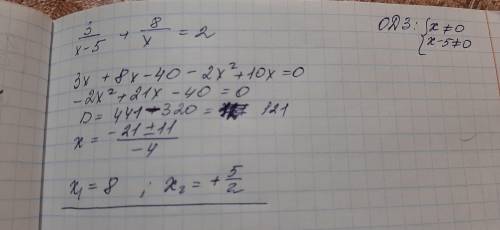 3/(x-5) + 8/x = 2
ОДЗ: { x ≠ 0
x-5 ≠ 0
3x + 8x - 40 - 2x² + 10x = 0
-2x² + 21x - 40 = 0
D = 441 - 320 = 121
x = (-21 ± 11)/(-4)
x₁ = 8 ; x₂ = +5/2